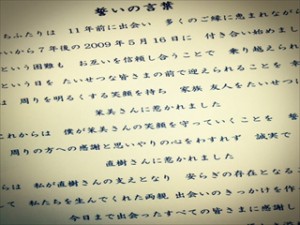 誓いの言葉
ちふたりは 11年前に出会い 多くのご縁に恵まれながら
いから7年後の2009年5月16日に 付き合い始めまし
という困難も お互いを信頼し合うことで 乗り越えられ
という日を たいせつな皆さまの前で迎えられることを 幸
は 周りを明るくする笑顔を持ち 家族 友人をたいせつ
美さんに惹かれました
これからは 僕が 美さんの笑顔を守っていくことを 誓
周りの方への感謝と思いやりの心をわすれず 誠実で
直樹さんに惹かれました
らは 私が直樹さんの支えとなり 安らぎの存在となるこ
て 私たちを生んでくれた両親 出会いのきっかけを作
今日まで出会ったすべての皆さまに感謝し